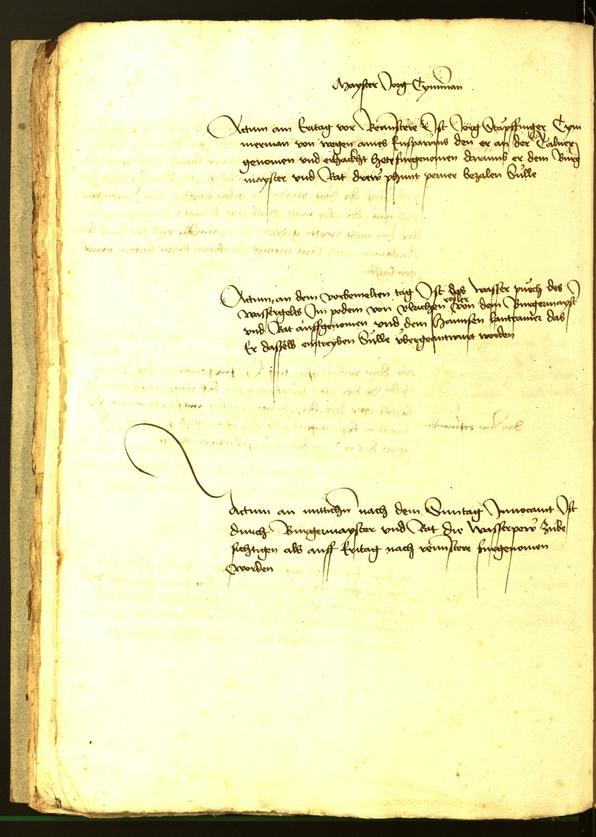 Mayster Jorg Cymerman
Actum am Eritag vor Reminiscere Ist Jorg Stapffinger Cym
merman von wegen aines der er an der Talner
genomen und herfurgenomen daraus er dem Burg
mayster und Rat drew phunt perner bezalen Sulle
Actum an dem vorbemelten tag Ist das wasser puech des
wassergelts Im podem von dem Burgermayst
und Rat auffgenomen und dem Hannsen lantramer das
Er dasselb eintreyben Sulle ubergeantwurt worden
Actum an mittichn nach dem Suntag Invocavit Ist
durch Burgermayster und Rat die Wasserpew zube
sichtigen als auff Eritag nach reminiscere furgenomen
worden